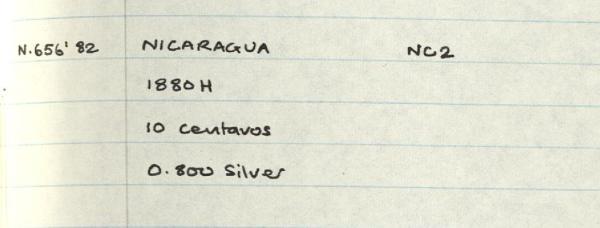 N.656' 82 NICARAGUA NC2
1880 H
10 centavos
0.800 Silver